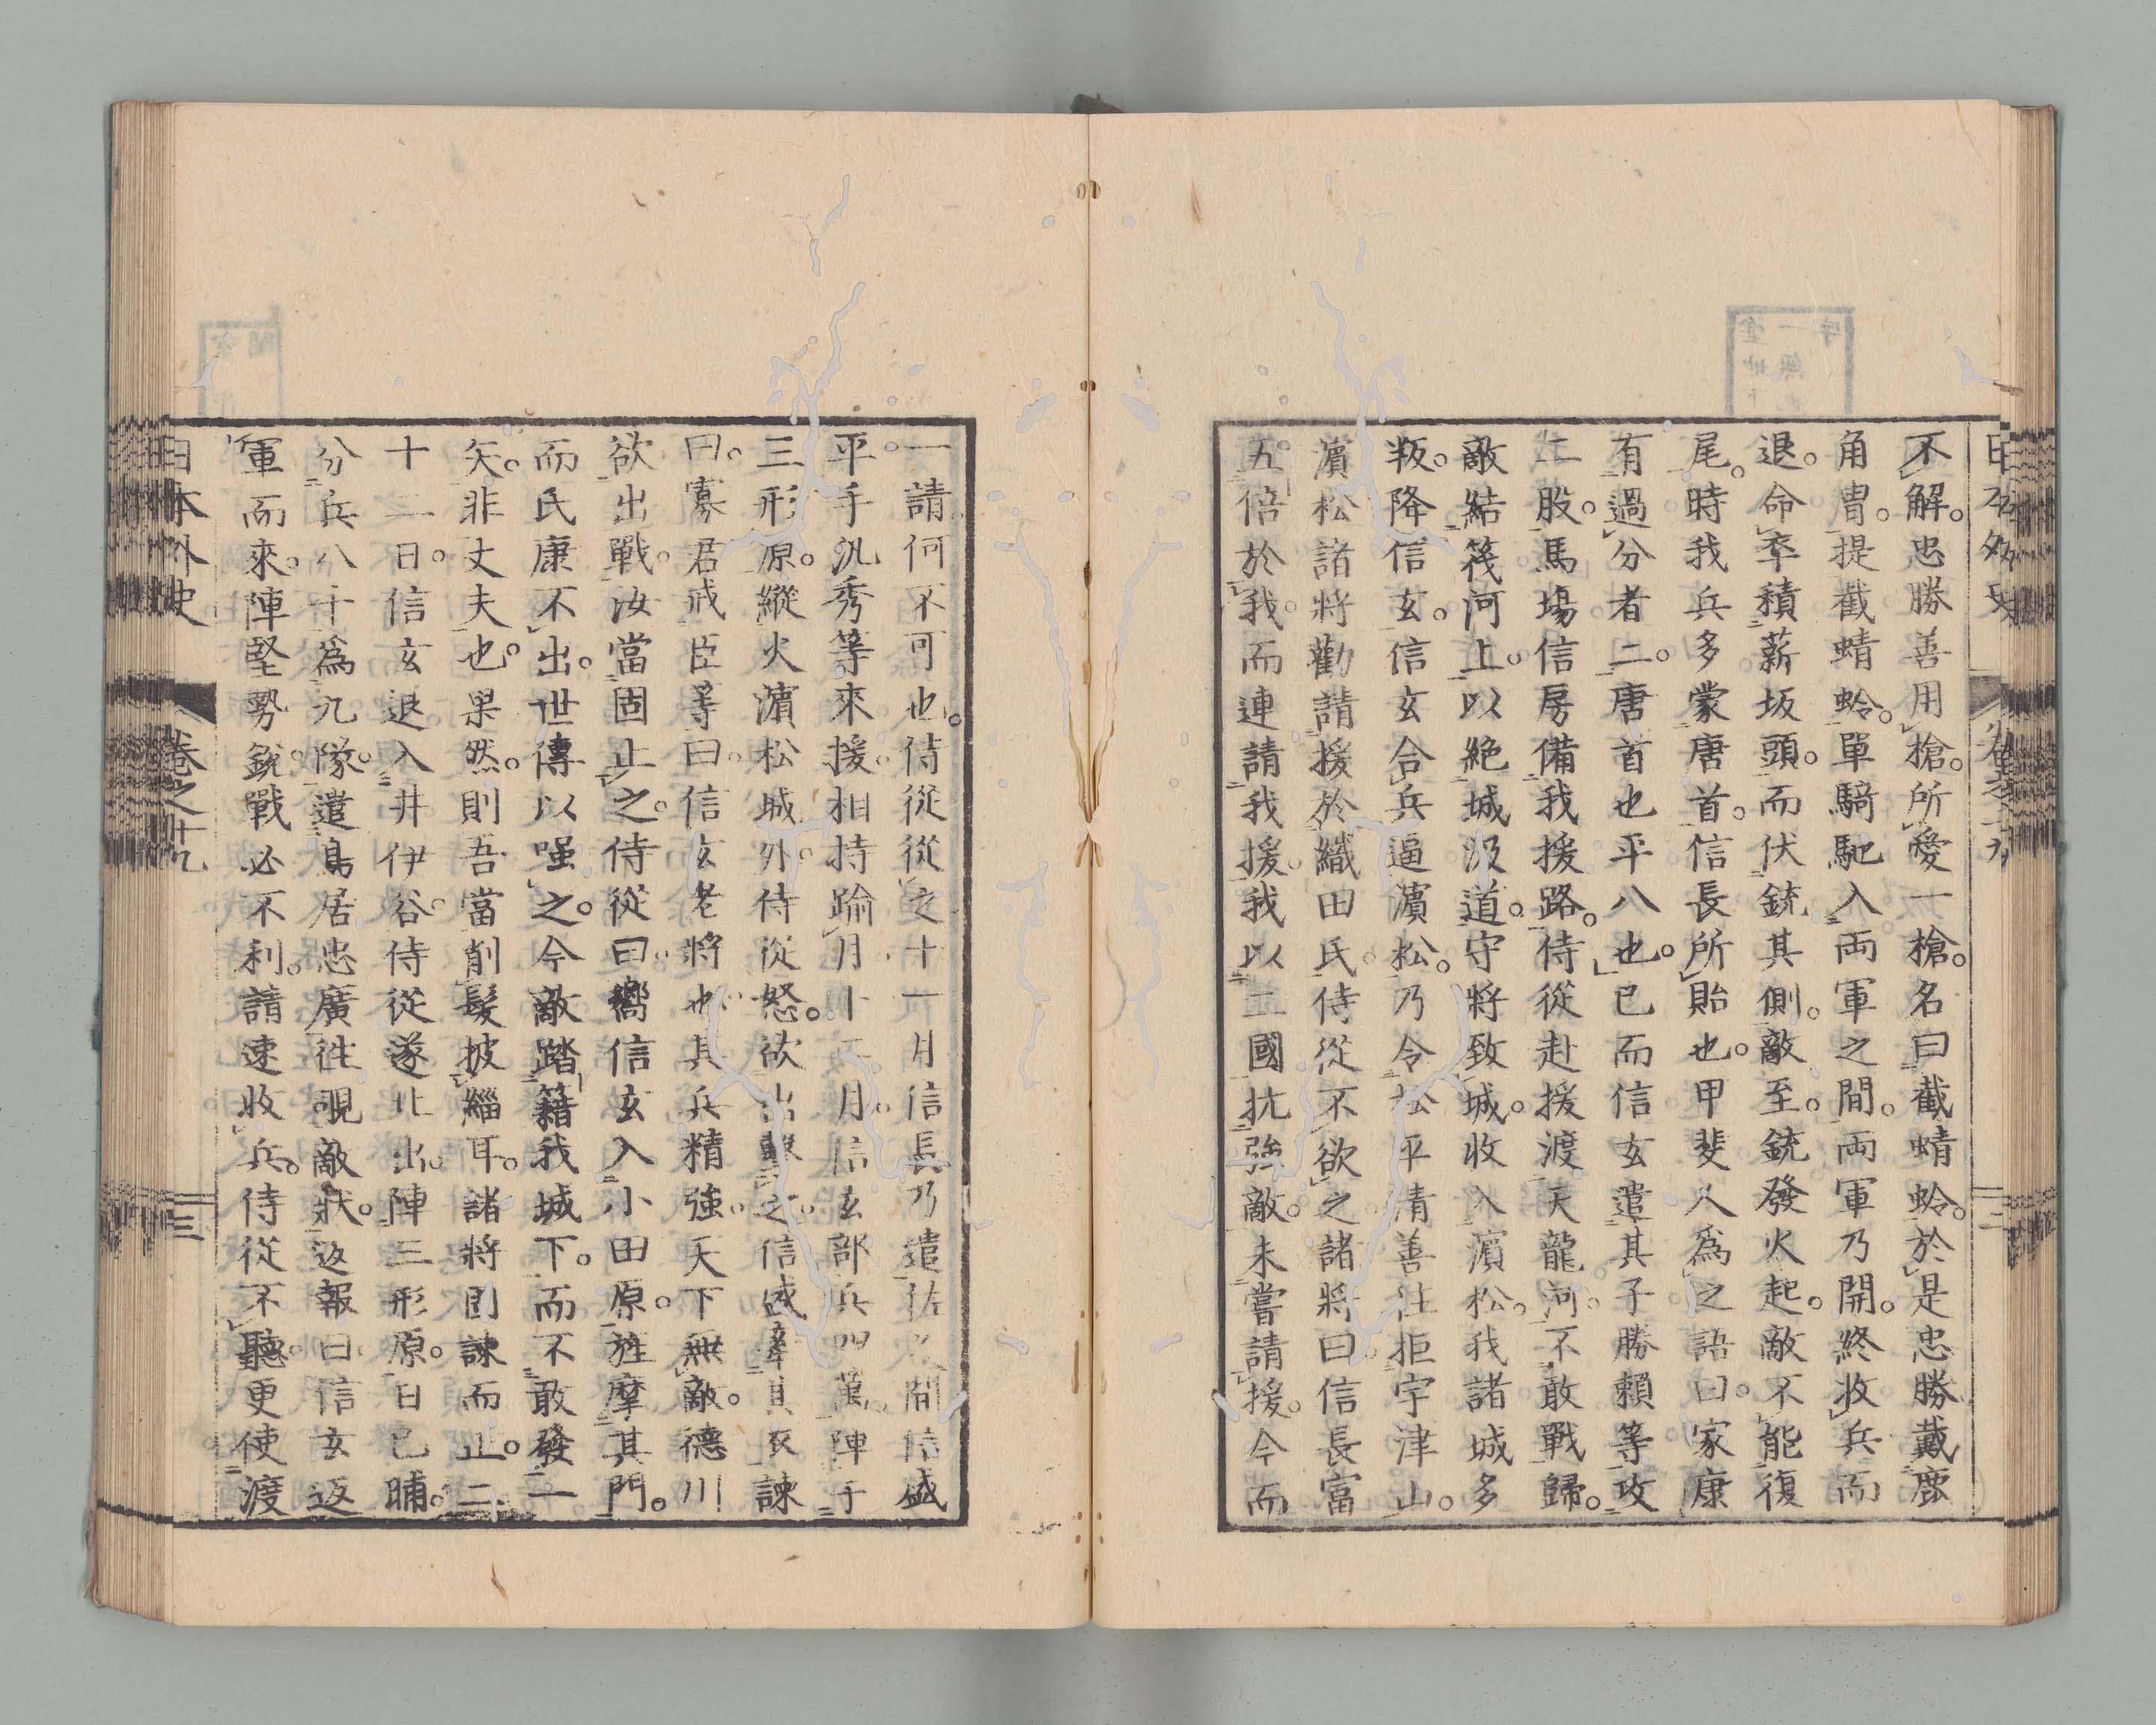 不解。忠勝善用槍。所愛一槍。名曰截蜻蛉。於是忠勝戴鹿
角冑。提截蜻蛉。單騎馳入両軍之間。両軍乃開。終收兵而
退。命卒積薪坂頭。而伏銃其側。敵至。銃發火起。敵不能復
尾。時我兵多蒙唐首。信長所貽也。甲斐人爲之語曰。家康
有過分者二。唐首也平八也。已而信玄遣其子勝頼等攻
二股。馬塲信房備我援路。侍從赴援渡天龍河。不敢戰歸。
敵結筏河上。以絶城汲道。守將致城。收入濵松。我諸城多
叛。降信玄。信玄合兵逼濵松。乃令松平清善往拒宇津山。
濵松諸將勸請援於織田氏。侍從不欲之。諸將曰。信長富
五倍於我。而連請我援。我以二國抗強敵。未嘗請援。今而
日本外史 卷之十九 二
一請何不可也。侍從從之。十一月信長乃遣佐久間信盛
平手汎秀等來援。相持踰月。十二月。信玄部兵四萬。陣于
三形原。縱火濵松城外。侍從怒。欲出擊之。信盛牽其衣諫
曰。寡君戒臣等曰。信玄老將也。其兵精強。天下無敵。德川
欲出戰。汝當固止之。侍從曰。嚮信玄入小田原。旌摩其門。
而氏康不出。世傳以嗤之。今敵踏籍我城下。而不敢發一
矢。非丈夫也。果然。則吾當削髮披緇耳。諸將固諫而止。二
十二日。信玄退入井伊谷。侍從遂北出。陣三形原。日已晡。
分兵八千爲九隊。遣鳥居忠廣往覘敵狀。返報曰。信玄返
軍而來。陣堅勢銳。戰必不利。請速收兵。侍從不聽。更使渡
日本外史 卷之十九 三